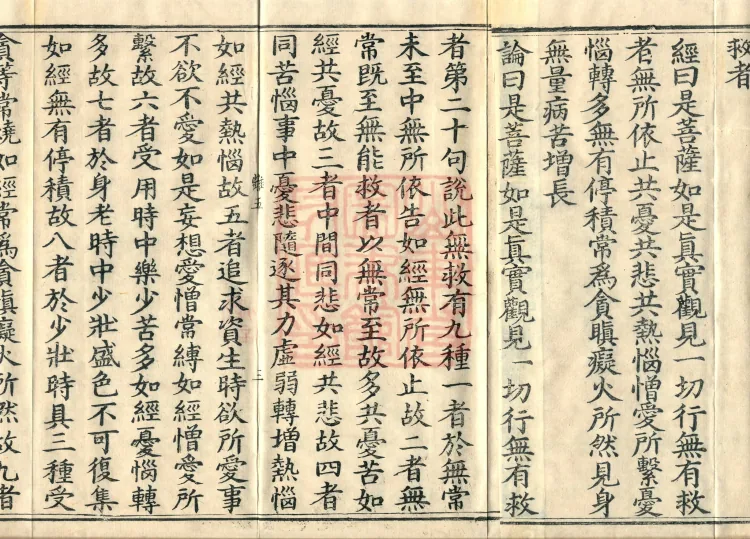 救者
經曰是菩薩如是真實觀見一切行無有救
者無所依止共憂共悲共熱惱憎愛所繫憂
惱轉多無有停積常爲貪瞋癡火所然見身
無量病苦增長
論曰是菩薩如是真實觀見一切行無有救
者第二十句說此無救有九種一者於無常
未至中無所依告如經無所依止故二者無
常既至無能救者以無常至故多共憂苦如
經共憂故三者中間同悲如經共悲故四者
同苦惱事中憂悲隨逐其力虛弱轉增熱惱
五
三
如經共熱惱故五者追求資生時欲所愛事
不欲不愛如是妄想愛憎常縛如經憎愛所
繫故六者受用時中樂少苦多如經憂惱轉
多故七者於身老時中少壯盛色不可復集
如經無有停積故八者於少壯時具三種受
貪等常燒如經常爲貪瞋癡火所然故九者